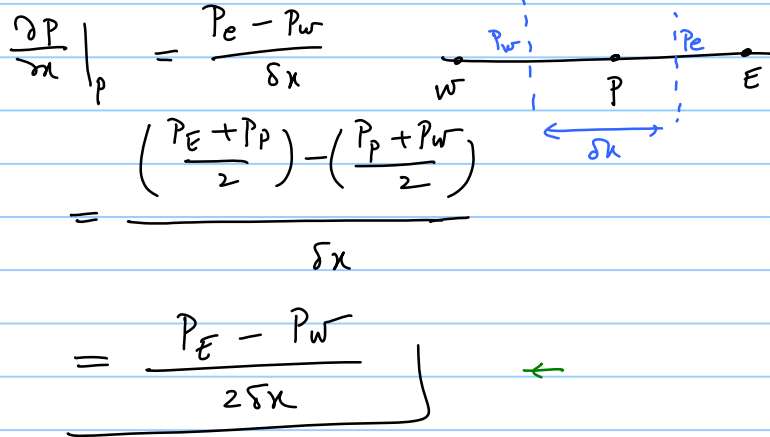 ∂P/∂x |_P = (P_e − P_w)/δx
P_w P_e
W P E
δx
= ((P_E + P_P)/2) − ((P_P + P_W)/2) / δx
= (P_E − P_W)/(2δx) ←